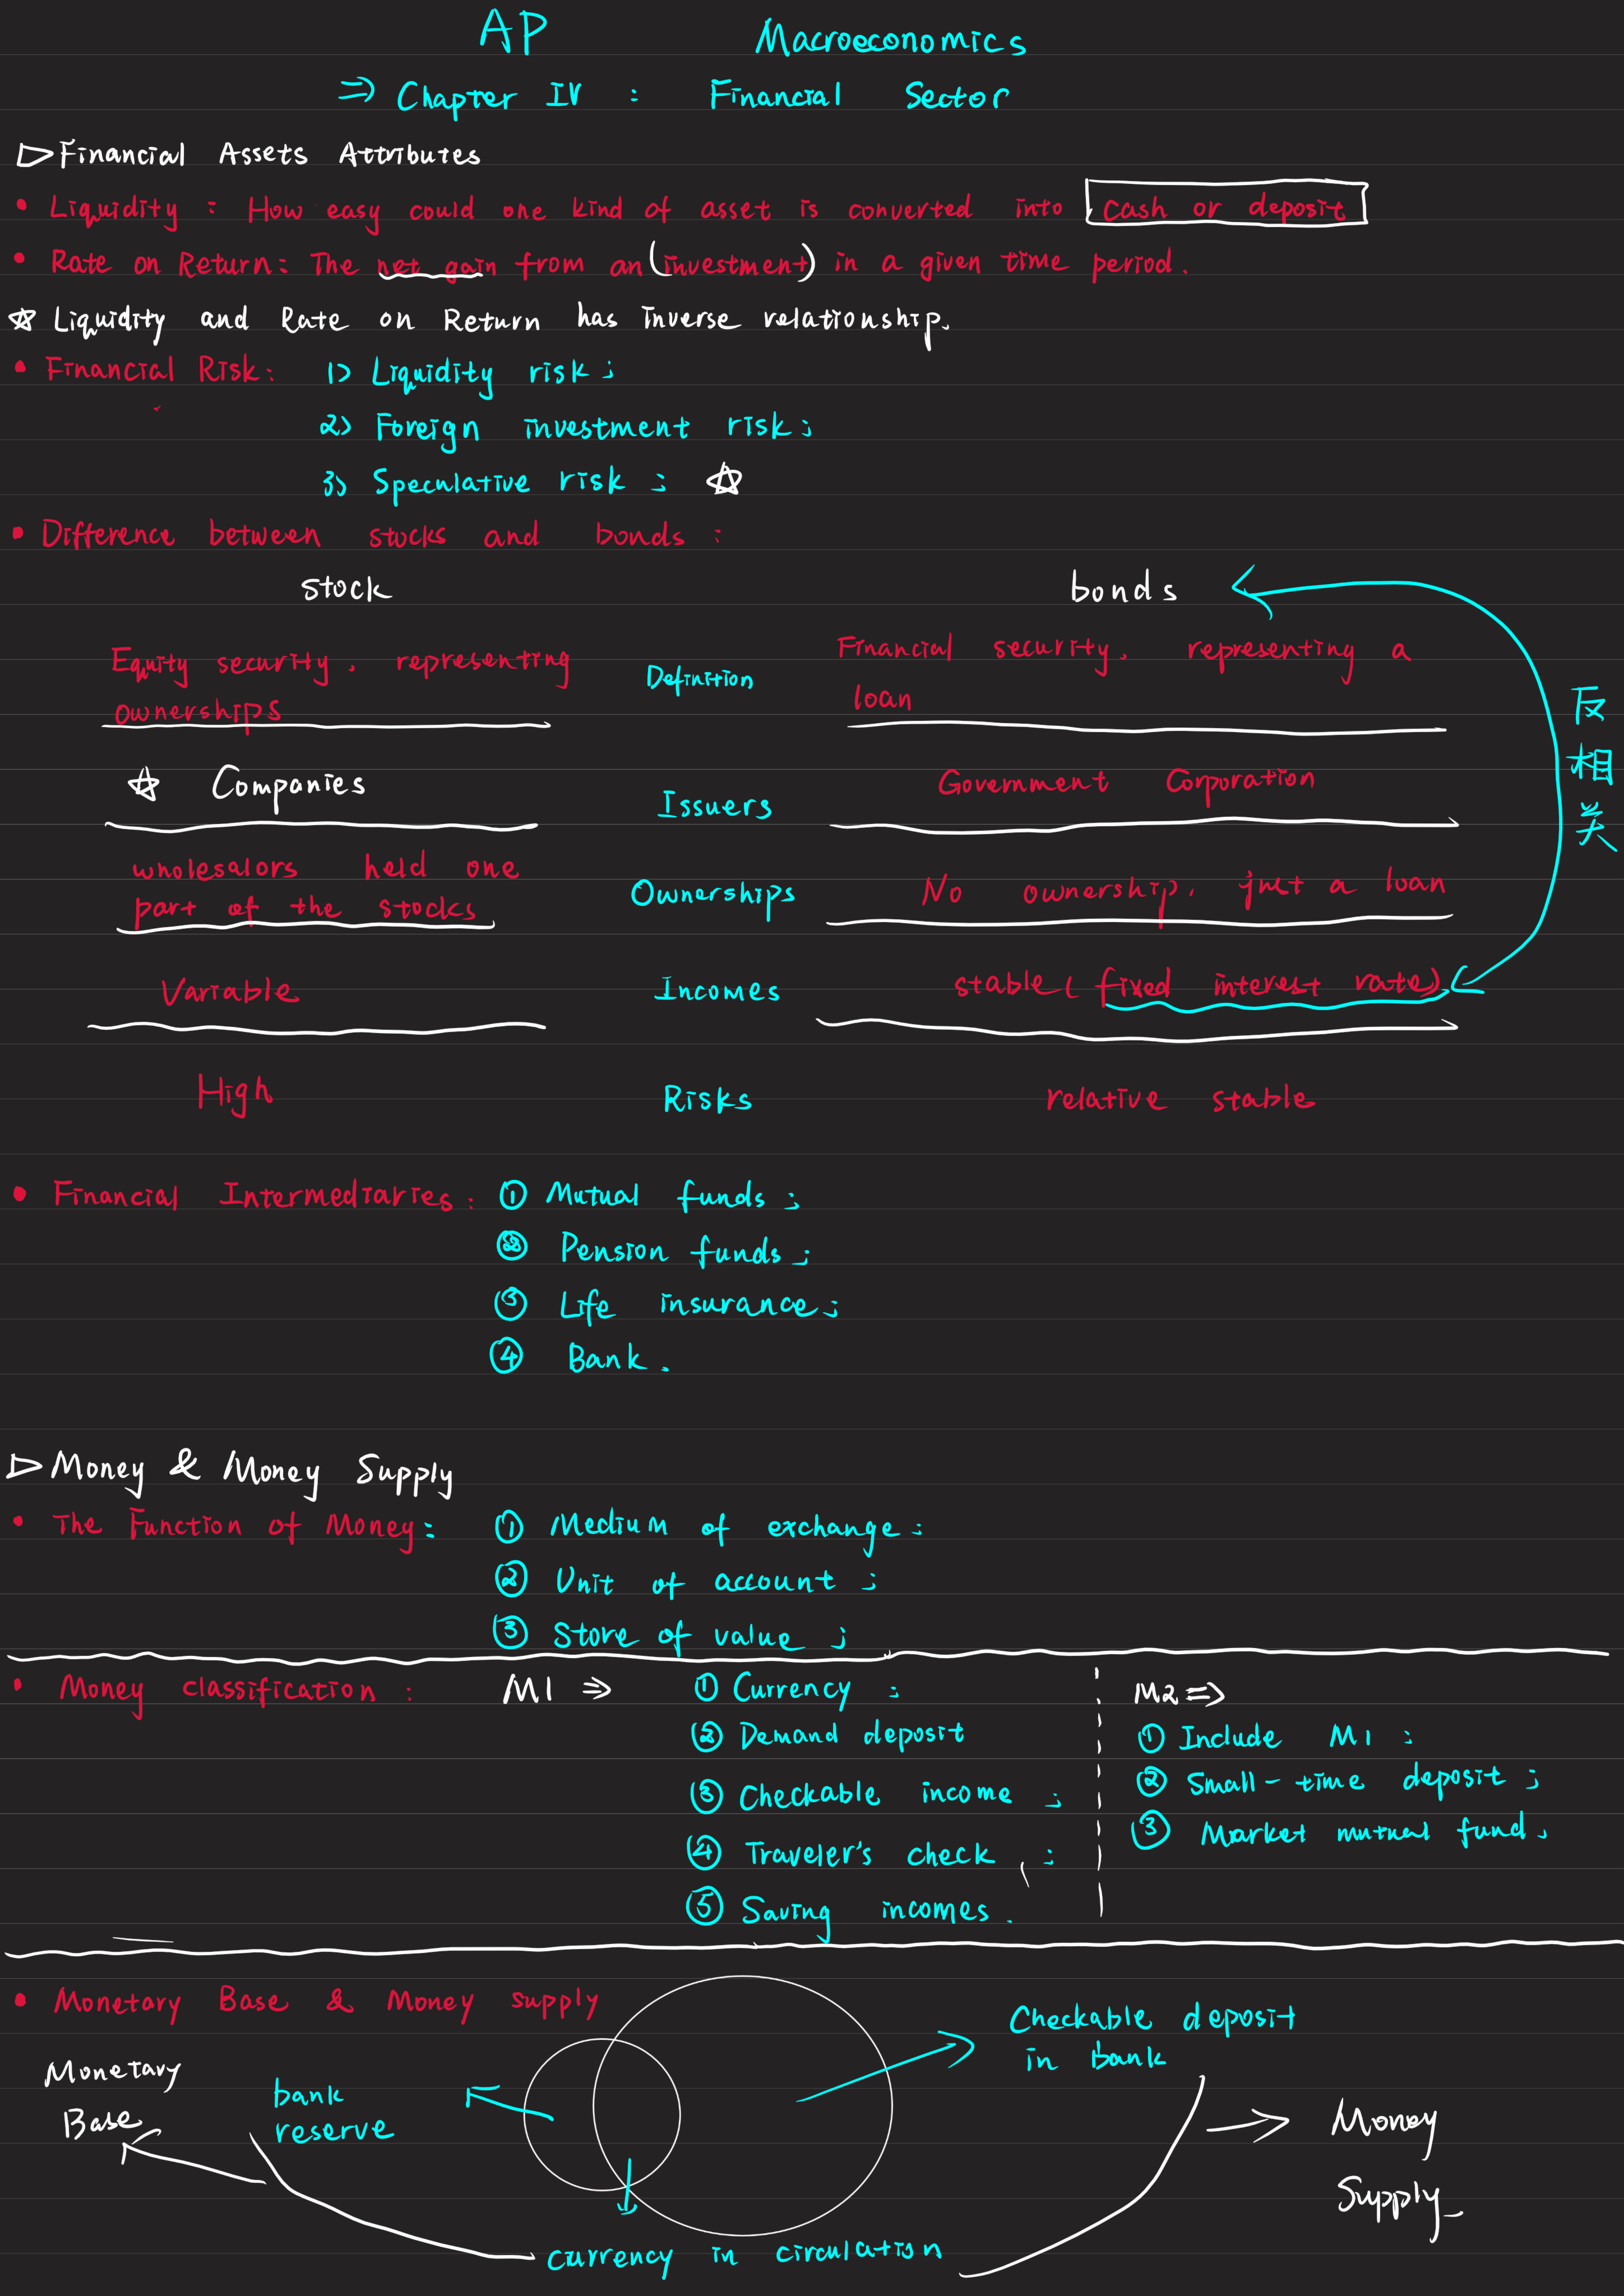 AP Macroeconomics
⇒ Chapter IV : Financial Sector
▷Financial Assets Attributes
• Liquidity : How easy could one kind of asset is converted into cash or deposit
• Rate on Return: The net gain from an (investment) in a given time period.
☆ Liquidity and Rate on Return has inverse relationship.
• Financial Risk: 1> Liquidity risk ;
2> Foreign investment risk ;
3> Speculative risk ; ☆
• Difference between stocks and bonds :
stock bonds
Equity security, representing ownerships
Definition
Financial security, representing a loan
反相关
☆ Companies
Issuers
Government Corporation
wholesalors held one part of the stocks
Ownerships
No ownership, just a loan
Variable
Incomes
stable ( fixed interest rate)
High
Risks
relative stable
• Financial Intermediaries : ① Mutual funds ;
② Pension funds ;
③ Life insurance ;
④ Bank .
▷Money & Money Supply
• The Function of Money : ① Medium of exchange ;
② Unit of account ;
③ Store of value ;
• Money classification :
M1 ⇒
① Currency ;
② Demand deposit
③ Checkable income ;
④ Traveler's check ;
⑤ Saving incomes .
M2 ⇒
① Include M1 ;
② Small-time deposit ;
③ Market mutual fund .
• Monetary Base & Money supply
Checkable deposit
in bank
Monetary
Base
bank
reserve
Money
Supply
currency in circulation